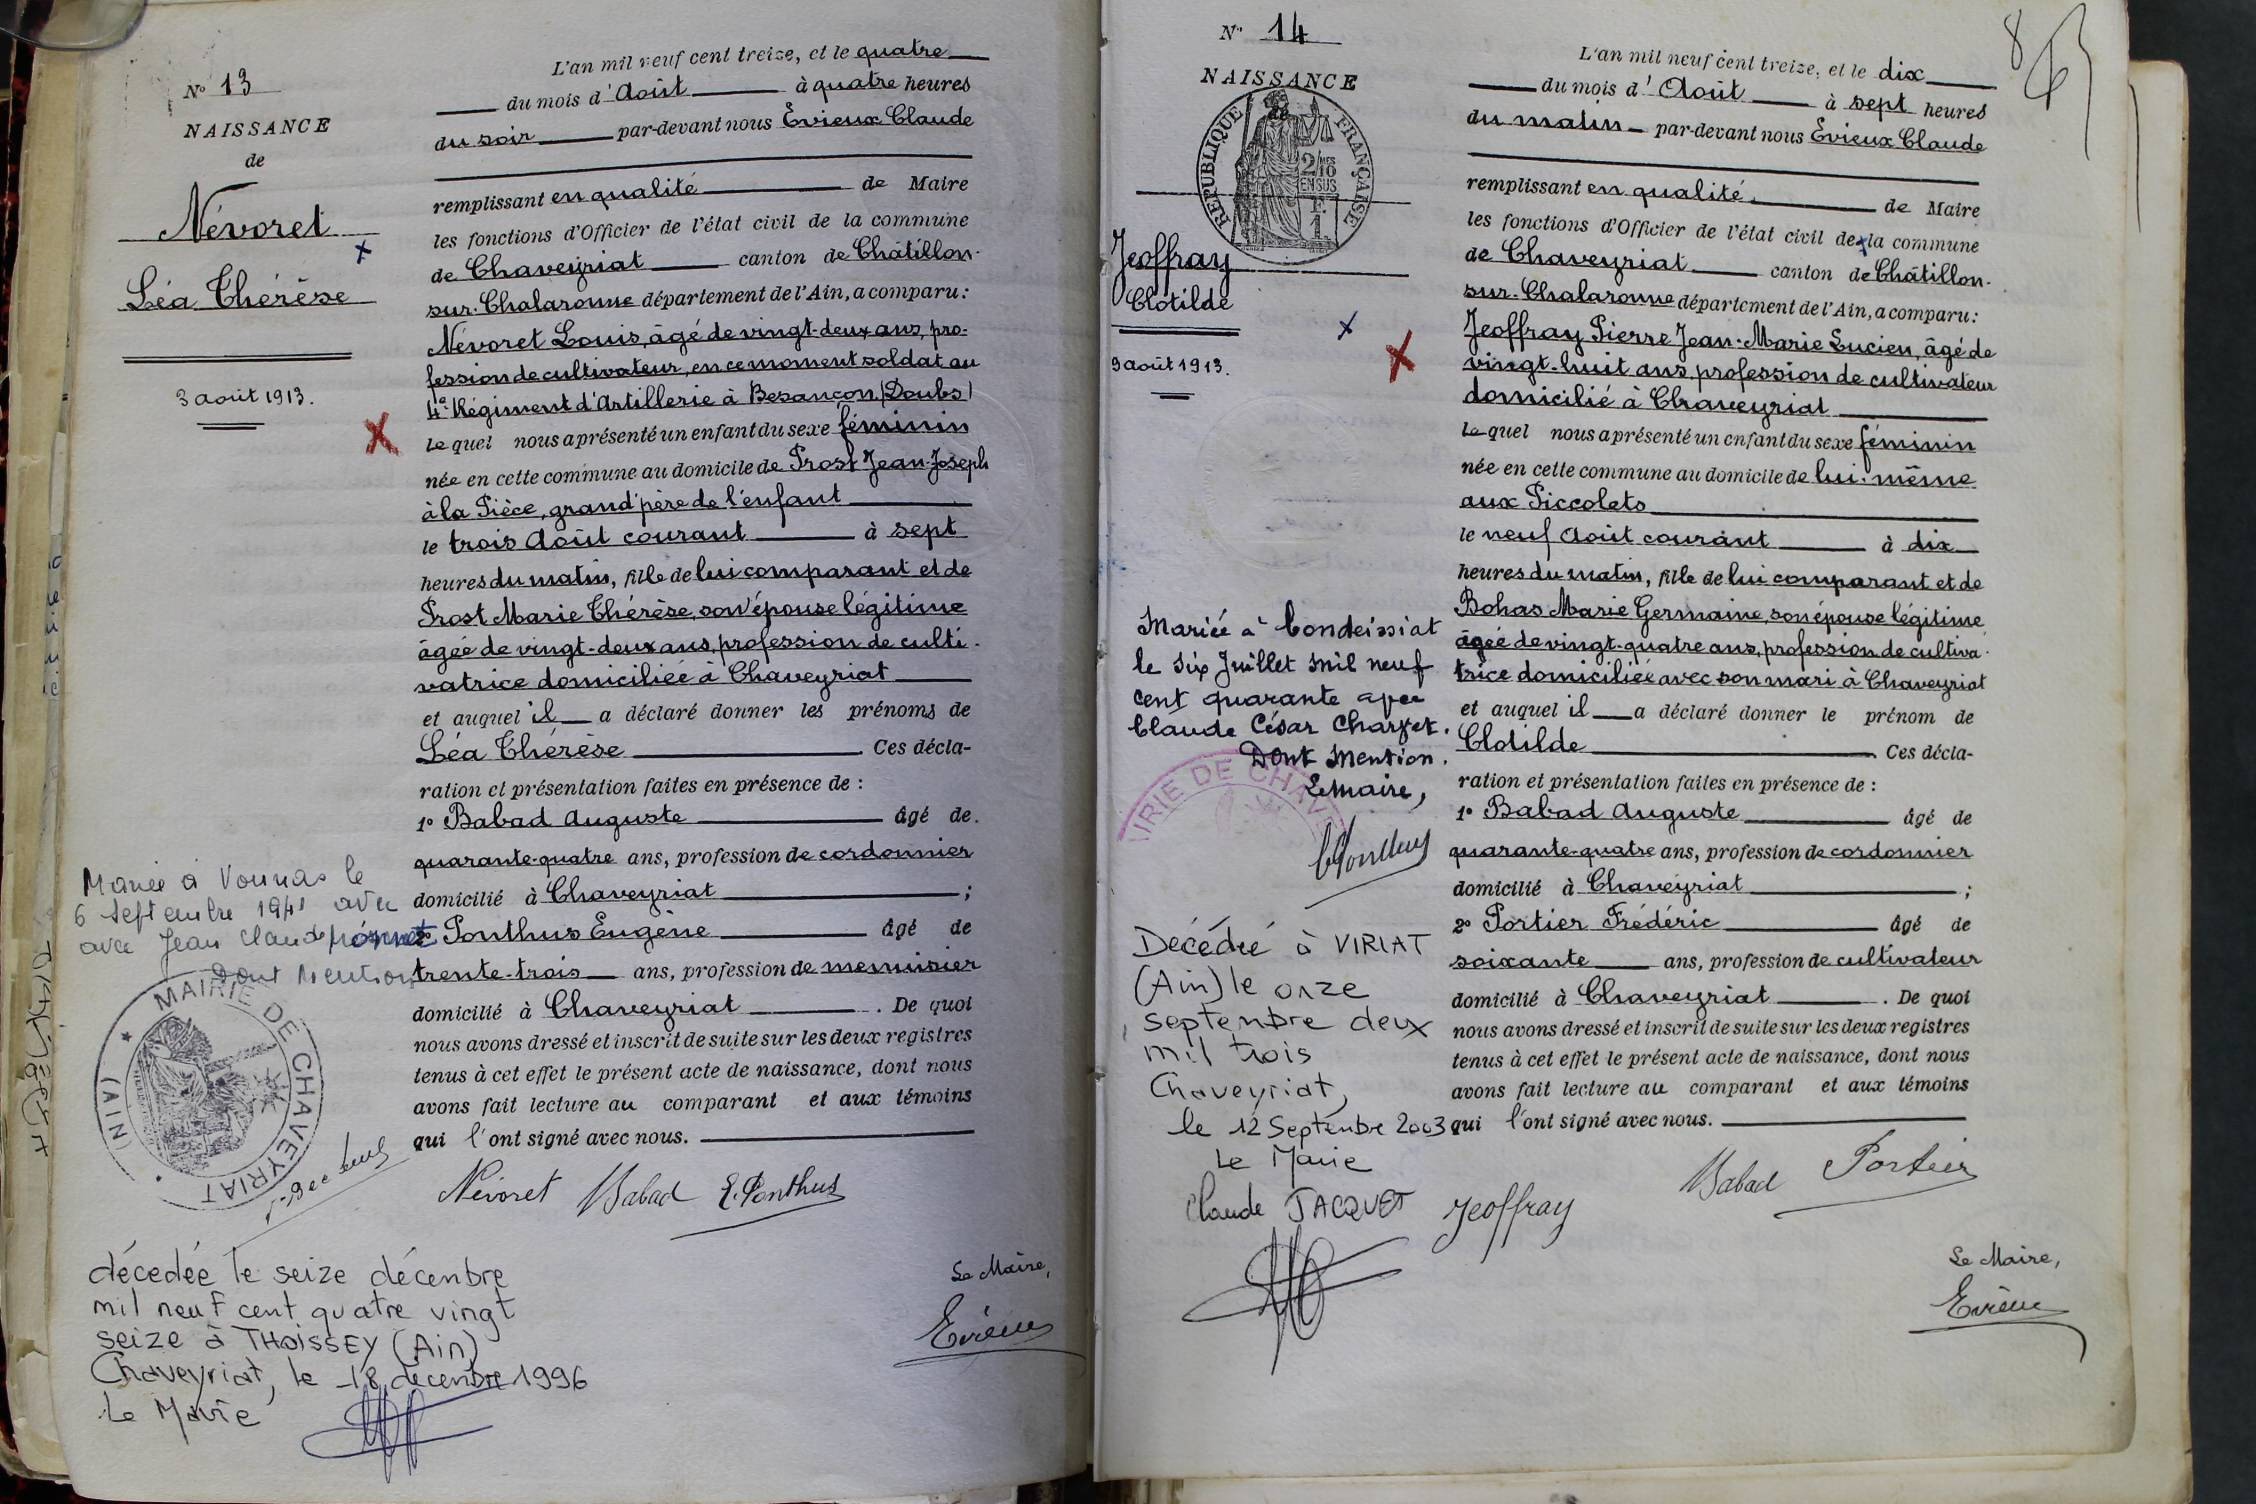 N° 13
NAISSANCE
de
Névoret
Léa Thérèse
3 août 1913.
L'an mil neuf cent treize, et le quatre
du mois d'Août à quatre heures
du soir par-devant nous Évieux Claude
remplissant en qualité de Maire
les fonctions d'Officier de l'état civil de la commune
de Chaveyriat canton de Châtillon-
sur-Chalaronne département de l'Ain, a comparu:
Névoret Louis, âgé de vingt-deux ans, pro-
fession de cultivateur, en ce moment soldat au
4e Régiment d'Artillerie à Besançon (Doubs)
lequel nous a présenté un enfant du sexe féminin
née en cette commune au domicile de Prost Jean-Joseph
à la Pièce, grand'père de l'enfant
le trois Août courant à sept
heures du matin, fille de lui comparant et de
Prost Marie Thérèse, son épouse légitime
âgée de vingt-deux ans, profession de culti-
vatrice domiciliée à Chaveyriat
et auquel il a déclaré donner les prénoms de
Léa Thérèse. Ces décla-
ration et présentation faites en présence de :
1° Babad Auguste âgé de
quarante-quatre ans, profession de cordonnier
domicilié à Chaveyriat ;
2° Ponthus Eugène âgé de
trente-trois ans, profession de menuisier
domicilié à Chaveyriat . De quoi
nous avons dressé et inscrit de suite sur les deux registres
tenus à cet effet le présent acte de naissance, dont nous
avons fait lecture au comparant et aux témoins
qui l'ont signé avec nous.
Névoret Babad E. Ponthus
Le Maire,
Evieux
Mariée à Vonnas le
6 septembre 1941 avec
avec Jean Claude
Dont Mention
MAIRIE DE CHAVEYRIAT
(AIN)
décédée le seize décembre
mil neuf cent quatre vingt
seize à THOISSEY (Ain)
Chaveyriat, le 18 décembre 1996
Le Maire
N° 14
NAISSANCE
de
RÉPUBLIQUE FRANÇAISE
2/10MES
EN SUS
F.
1.
Jeoffray
Clotilde
9 août 1913.
L'an mil neuf cent treize, et le dix
du mois d'Août à sept heures
du matin par-devant nous Évieux Claude
remplissant en qualité de Maire
les fonctions d'Officier de l'état civil de la commune
de Chaveyriat canton de Châtillon-
sur-Chalaronne département de l'Ain, a comparu:
Jeoffray Pierre Jean-Marie Lucien, âgé de
vingt-huit ans, profession de cultivateur
domicilié à Chaveyriat
lequel nous a présenté un enfant du sexe féminin
née en cette commune au domicile de lui-même
aux Piccolets
le neuf Août courant à dix
heures du matin, fille de lui comparant et de
Bohas Marie Germaine, son épouse légitime
âgée de vingt-quatre ans, profession de cultiva-
trice domiciliée avec son mari à Chaveyriat
et auquel il a déclaré donner le prénom de
Clotilde. Ces décla-
ration et présentation faites en présence de :
1° Babad Auguste âgé de
quarante-quatre ans, profession de cordonnier
domicilié à Chaveyriat ;
2° Portier Frédéric âgé de
soixante ans, profession de cultivateur
domicilié à Chaveyriat . De quoi
nous avons dressé et inscrit de suite sur les deux registres
tenus à cet effet le présent acte de naissance, dont nous
avons fait lecture au comparant et aux témoins
qui l'ont signé avec nous.
Jeoffray Babad Portier
Le Maire,
Evieux
Mariée à Condeissiat
le six Juillet mil neuf
cent quarante avec
Claude César Charvet.
Dont Mention.
Le Maire,
MAIRIE DE CHAVE
Décédée à VIRIAT
(Ain) le onze
septembre deux
mil trois
Chaveyriat,
le 12 Septembre 2003
Le Maire
Claude JACQUET